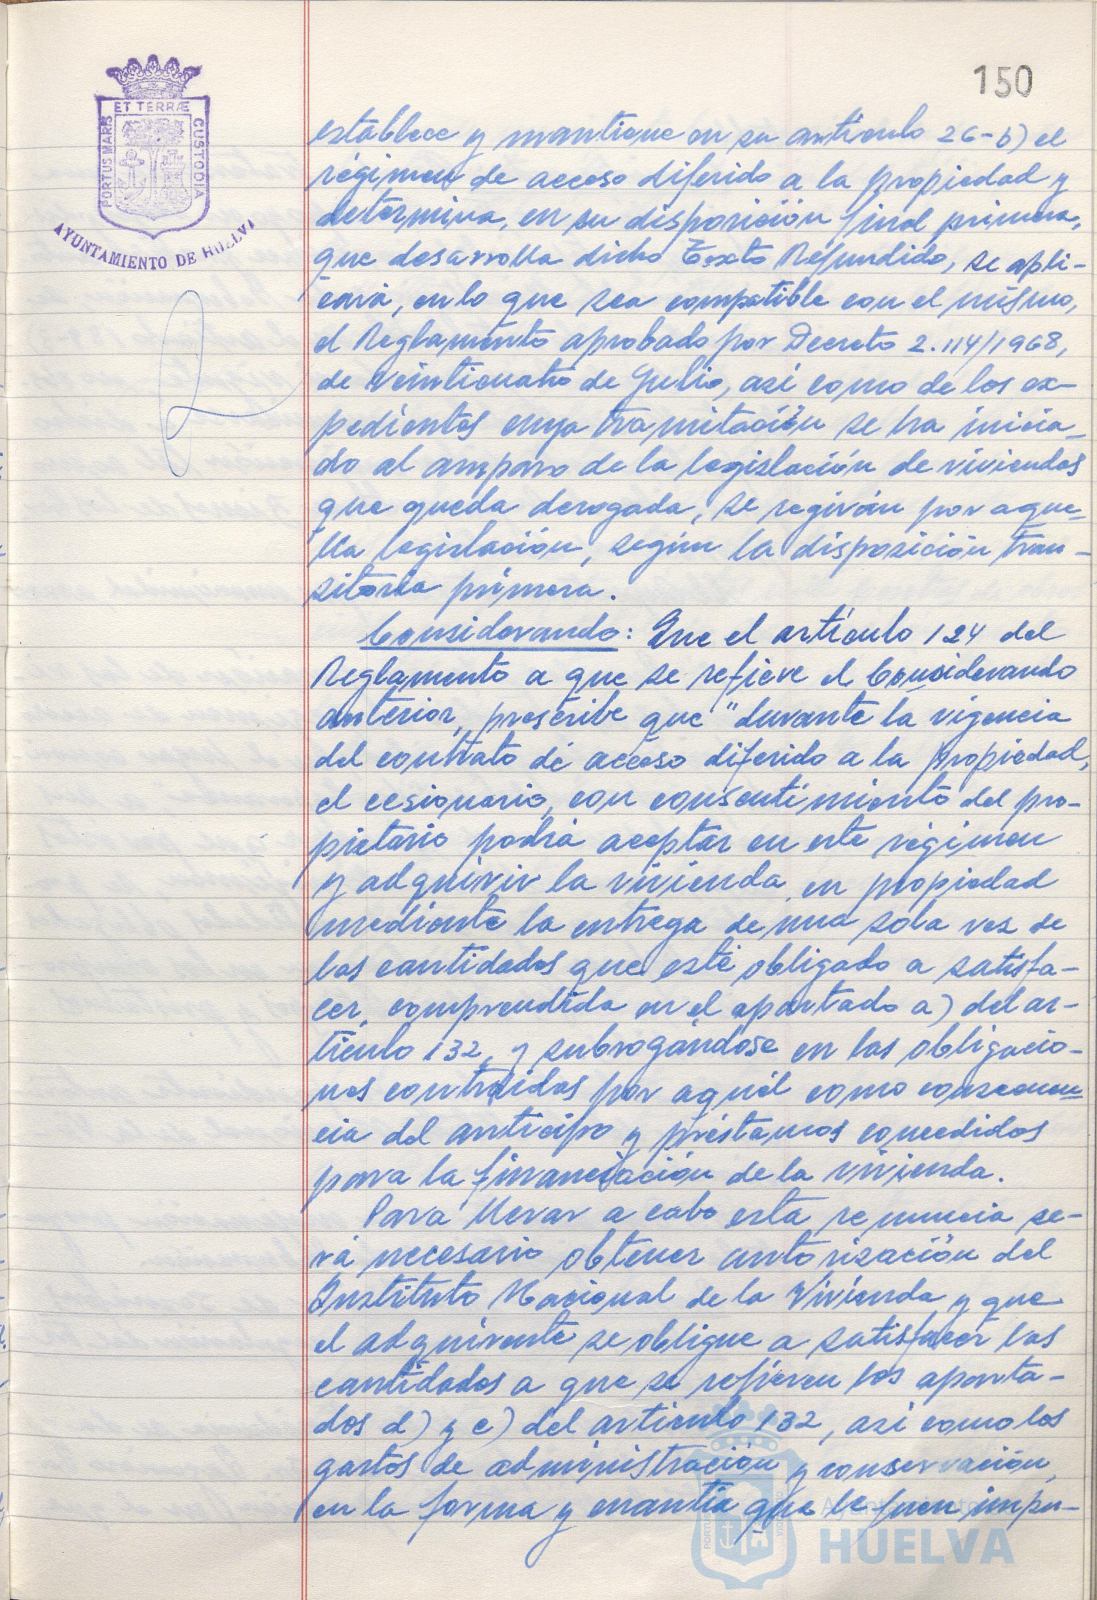 150
ET TERRÆ
PORTUS MARIS
CUSTODIA
AYUNTAMIENTO DE HUELVA
establece y mantiene en su artículo 26-b) el
régimen de acceso diferido a la propiedad y
determina, en su disposición final primera,
que desarrolla dicho Texto Refundido, se apli-
cará, en lo que sea compatible con el mismo,
el Reglamento aprobado por Decreto 2.114/1968,
de veinticuatro de Julio, así como de los ex-
pedientes cuya tramitación se ha inicia-
do al amparo de la legislación de viviendas
que queda derogada, se regirán por aque-
lla legislación, según la disposición tran-
sitoria primera.
Considerando: Que el artículo 124 del
Reglamento a que se refiere el Considerando
anterior, prescribe que "durante la vigencia
del contrato de acceso diferido a la propiedad,
el cesionario, con consentimiento del pro-
pietario podrá aceptar en este régimen
y adquirir la vivienda en propiedad
mediante la entrega de una sola vez de
las cantidades que esté obligado a satisfa-
cer, comprendida en el apartado a) del ar-
tículo 132, y subrogándose en las obligacio-
nes contraídas por aquél como consecuen-
cia del anticipo y préstamos concedidos
para la financiación de la vivienda.
Para llevar a cabo esta renuncia se-
rá necesario obtener autorización del
Instituto Nacional de la Vivienda y que
el adquirente se obligue a satisfacer las
cantidades a que se refieren los aparta-
dos d) y e) del artículo 132, así como los
gastos de administración y conservación,
en la forma y cuantía que le fuen impu-
Ayuntamiento de
HUELVA